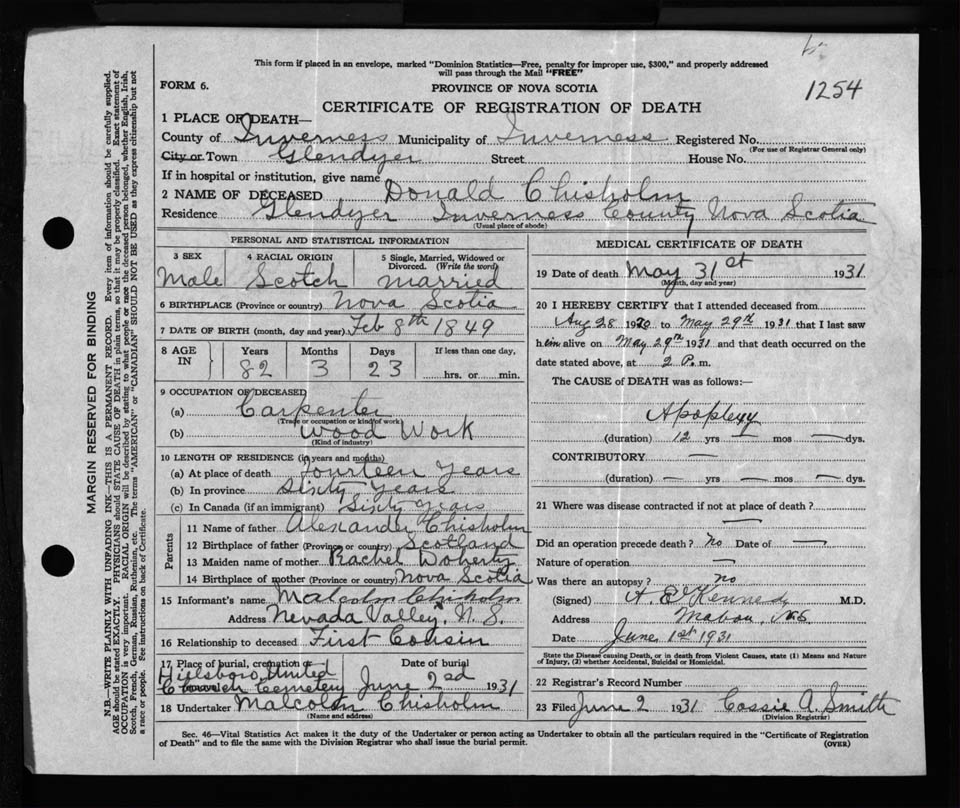 This form if placed in an envelope, marked "Dominion Statistics—Free, penalty for improper use, $300," and properly addressed
will pass through the Mail "FREE"
1254
FORM 6.
PROVINCE OF NOVA SCOTIA
CERTIFICATE OF REGISTRATION OF DEATH
1 PLACE OF DEATH—
County of Inverness Municipality of Inverness Registered No.
(For use of Registrar General only)
City or Town Glendyer Street House No.
If in hospital or institution, give name
2 NAME OF DECEASED Donald Chisholm
Residence Glendyer Inverness County Nova Scotia
(Usual place of abode)
PERSONAL AND STATISTICAL INFORMATION
3 SEX 4 RACIAL ORIGIN 5 Single, Married, Widowed or Divorced. (Write the word)
Male Scotch Married
6 BIRTHPLACE (Province or country) Nova Scotia
7 DATE OF BIRTH (month, day and year) Feb 8th 1849
8 AGE IN Years Months Days If less than one day,
82 3 23 hrs. or min.
9 OCCUPATION OF DECEASED
(a) Carpenter
(Trade or occupation or kind of work)
(b) Wood Work
(Kind of industry)
10 LENGTH OF RESIDENCE (in years and months)
(a) At place of death Fourteen Years
(b) In province Sixty Years
(c) In Canada (if an immigrant) Sixty Years
Parents
11 Name of father Alexander Chisholm
12 Birthplace of father (Province or country) Scotland
13 Maiden name of mother Rachel Doherty
14 Birthplace of mother (Province or country) Nova Scotia
15 Informant's name Malcolm Chisholm
Address Nevada Valley, N. S.
16 Relationship to deceased First Cousin
17 Place of burial, cremation or removal Date of burial
Hillsboro United
Church Cemetery June 2nd 1931
18 Undertaker Malcolm Chisholm
(Name and address)
MEDICAL CERTIFICATE OF DEATH
19 Date of death May 31st 1931
(Month, day and year)
20 I HEREBY CERTIFY that I attended deceased from
Aug 28 1920 to May 29th 1931 that I last saw
him alive on May 29th 1931 and that death occurred on the
date stated above, at 2 P. m.
The CAUSE OF DEATH was as follows:—
Apoplexy
(duration) 12 yrs — mos — dys.
CONTRIBUTORY —
(duration) — yrs — mos — dys.
21 Where was disease contracted if not at place of death?
—
Did an operation precede death? No Date of —
Nature of operation —
Was there an autopsy? no
(Signed) A. E. Kennedy M.D.
Address Mabou, N.S
Date June 1st 1931
State the Disease causing Death, or in death from Violent Causes, state (1) Means and Nature
of Injury, (2) whether Accidental, Suicidal or Homicidal.
22 Registrar's Record Number
23 Filed June 2 1931 Cassie A. Smith
(Division Registrar)
Sec. 46—Vital Statistics Act makes it the duty of the Undertaker or person acting as Undertaker to obtain all the particulars required in the "Certificate of Registration
of Death" and to file the same with the Division Registrar who shall issue the burial permit.
(OVER)
MARGIN RESERVED FOR BINDING
N.B.—WRITE PLAINLY WITH UNFADING INK—THIS IS A PERMANENT RECORD. Every item of information should be carefully supplied.
AGE should be stated EXACTLY. PHYSICIANS should STATE CAUSE OF DEATH in plain terms, so that it may be properly classified. Exact statement of
OCCUPATION is very important. RACIAL ORIGIN will be described by stating to what people or race the deceased person belonged, whether English, Irish,
Scotch, French, German, Russian, Ruthenian, etc. The terms "AMERICAN" or "CANADIAN" SHOULD NOT BE USED as they express citizenship but not
a race or people. See instructions on back of Certificate.